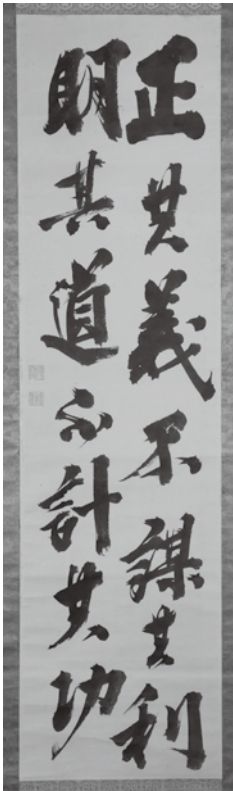 正其義不謀其利
明其道不計其功